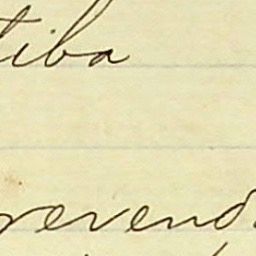 tiba
reveno